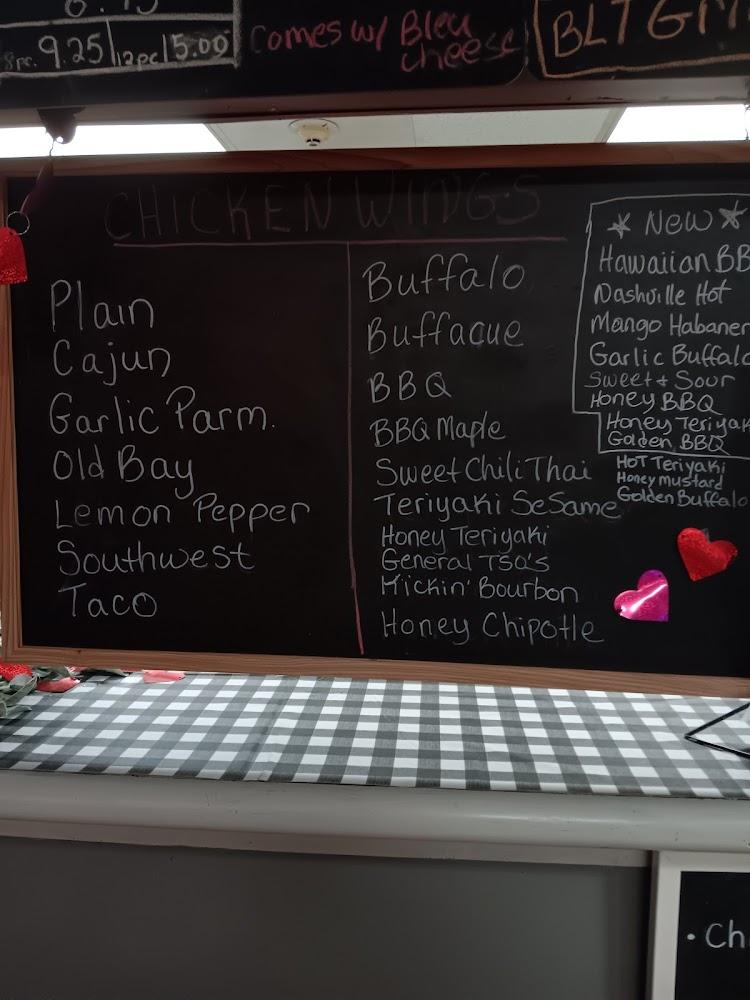 8pc. 9.25 12pc 15.00
Comes w/ Bleu
cheese
BLT
CHICKEN WINGS
Plain
Cajun
Garlic Parm.
Old Bay
Lemon Pepper
Southwest
Taco
Buffalo
Buffacue
BBQ
BBQ Maple
Sweet Chili Thai
Teriyaki SeSame
Honey Teriyaki
General TSO's
Kickin' Bourbon
Honey Chipotle
* New *
Hawaiian BB
Nashville Hot
Mango Habaner
Garlic Buffalo
Sweet & Sour
Honey BBQ
Honey Teriyak
Golden BBQ
HOT Teriyaki
Honey mustard
Golden Buffalo
• Ch